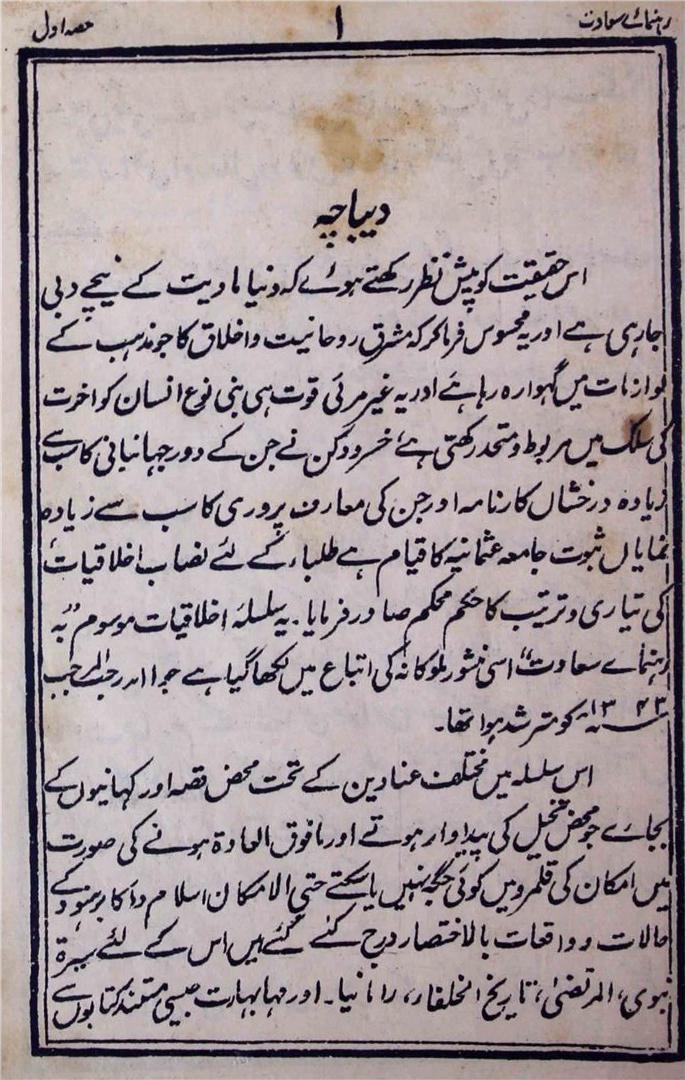 رہنمائے سعادت
۱
حصہ اول
دیباچہ
اس حقیقت کو پیش نظر رکھتے ہوئے کہ دنیا مادیت کے نیچے دبی
جارہی ہے اور یہ محسوس فرماکر کہ مشرق روحانیت و اخلاق کا جو مذہب کے
لوازمات میں گہوارہ رہا ہے اور یہ غیر مرئی قوت ہی بنی نوع انسان کو اخوت
کی سلک میں مربوط و متحد رکھتی ہے، خسرو دکن نے جن کے دور جہانبانی کا سب سے
زیادہ درخشاں کارنامہ اور جن کی معارف پروری کا سب سے زیادہ
نمایاں ثبوت جامعہ عثمانیہ کا قیام ہے طلباء کے لئے نصاب اخلاقیات
کی تیاری و ترتیب کا حکم محکم صادر فرمایا۔ یہ سلسلۂ اخلاقیات موسوم "بہ
رہنمائے سعادت" اسی منشور ملوکانہ کی اتباع میں لکھا گیا ہے جو ۱۱ رجب المرجب
۱۳۴۳ھ کو مترشد ہوا تھا۔
اس سلسلہ میں مختلف عنادین کے تحت محض قصہ اور کہانیوں کے
بجائے جو محض تخیل کی پیداوار ہوتے اور مافوق العادۃ ہونے کی صورت
میں امکان کی قلمرو میں کوئی جگہ نہیں پاسکتے حتی الامکان اسلام و اکابر ہنود کے
حالات و واقعات بالاختصار درج کئے گئے ہیں اس کے لئے سیرۃ
نبوی، المرتضیٰ، تاریخ الخلفار، رامانیا۔ اور مہابہارت جیسی مستند کتابوں سے